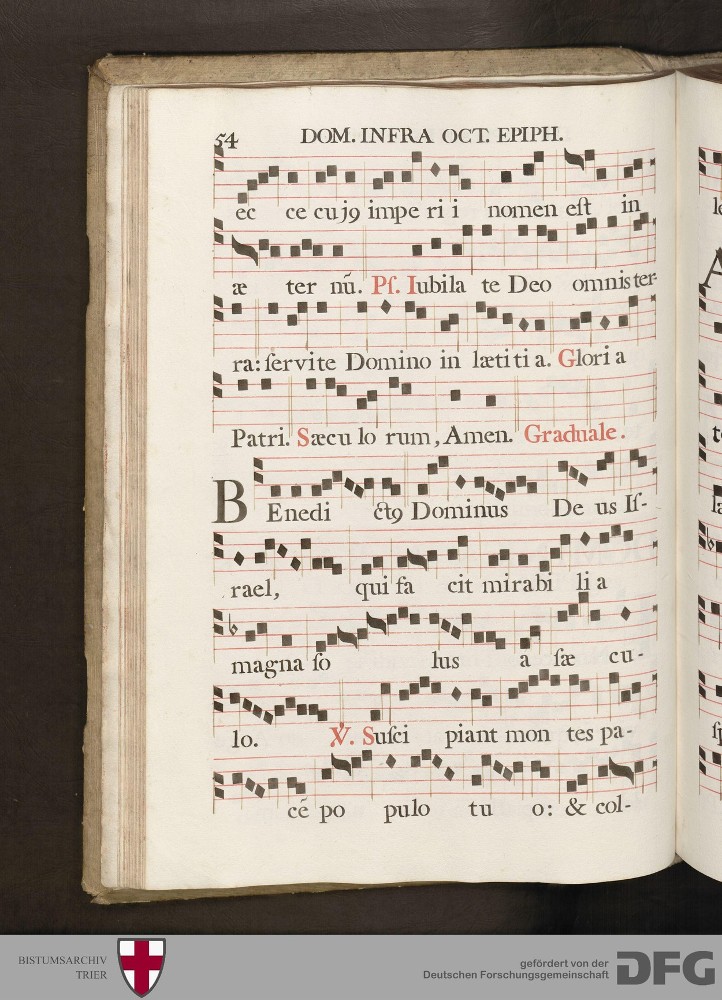 54 DOM. INFRA OCT. EPIPH.
ec ce cujꝯ impe ri i nomen eſt in
æ ter nũ. Pſ. Iubila te Deo omnis ter-
ra: ſervite Domino in lætiti a. Gloria
Patri. Sæcu lo rum, Amen. Graduale.
BEnedi ctꝯ Dominus De us Iſ-
rael, qui fa cit mirabi li a
magna ſo lus a ſæ cu-
lo. ℣. Suſci piant mon tes pa-
cẽ po pulo tu o: & col-
BISTUMSARCHIV
TRIER
gefördert von der
Deutschen Forschungsgemeinschaft
DFG